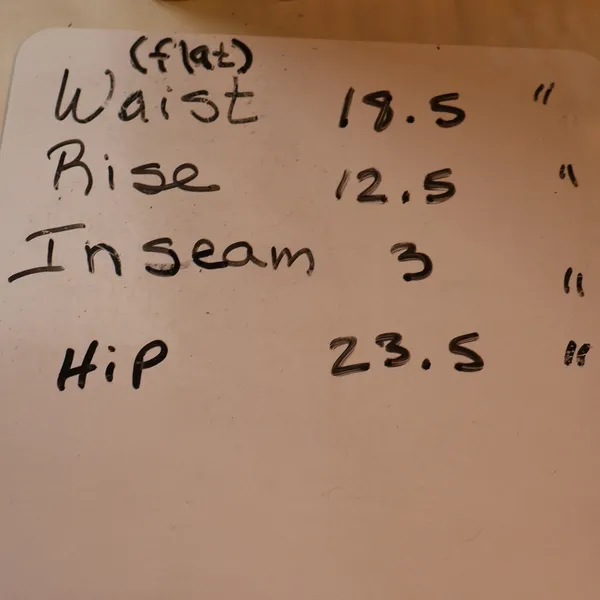 (flat)
Waist 18.5 "
Rise 12.5 "
Inseam 3 "
Hip 23.5 "